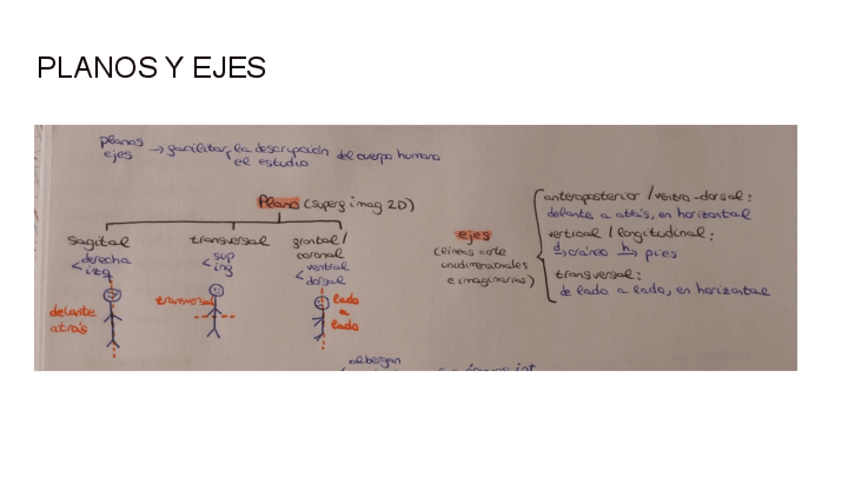 PLANOS Y EJES
planos
ejes → facilitar, la descripción del cuerpo humano
el estudio
Plano (superf imag 2D)
sagital
< derecha
izq
delante
atrás
transversal
< sup
inf
transversal
frontal /
coronal
< ventral
dorsal
lado
a
lado
ejes
(líneas corte
unidimensionales
e imaginarias)
anteroposterior / ventro-dorsal:
delante a atrás, en horizontal
vertical / longitudinal:
d→ cráneo h→ pies
transversal:
de lado a lado, en horizontal
albergan